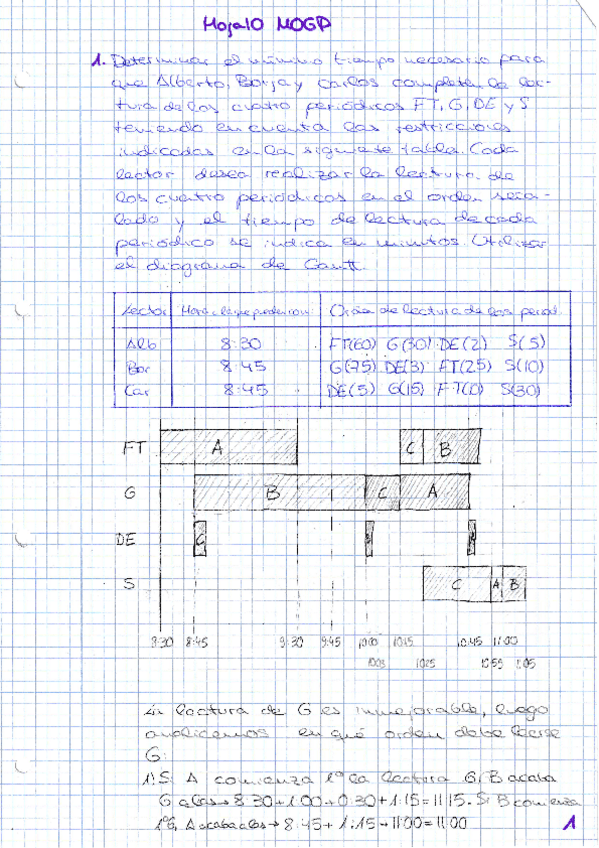 Hoja 10 MOGP
1. Determinar el mínimo tiempo necesario para
que Alberto, Borja y Carlos completen la lec-
tura de los cuatro periódicos FT, G, DE y S
teniendo en cuenta las restricciones
indicadas en la siguiente tabla. Cada
lector desea realizar la lectura de
los cuatro periódicos en el orden seña-
lado y el tiempo de lectura de cada
periódico se indica en minutos. Utilizar
el diagrama de Gantt.
Lector Orden de lectura de los period.
Alb 8:30 FT(60) G(30) DE(2) S(5)
Bor 8:45 G(75) DE(3) FT(25) S(10)
Car 8:45 DE(5) G(15) FT(10) S(30)
FT A C B
G B C A
DE C
S C A B
8:30 8:45 9:30 9:45 10:00 10:15 10:45 11:00
10:03 10:25 10:59 11:05
La lectura de G es inmejorable, luego
analicemos en qué orden debe leerse
G:
1) Si A comienza 1º la lectura G, B acaba
G a las → 8:30+1:00+0:30+1:15=11:15. Si B comienza
1º G, A acaba a las → 8:45+1:15+1:00=11:00
1